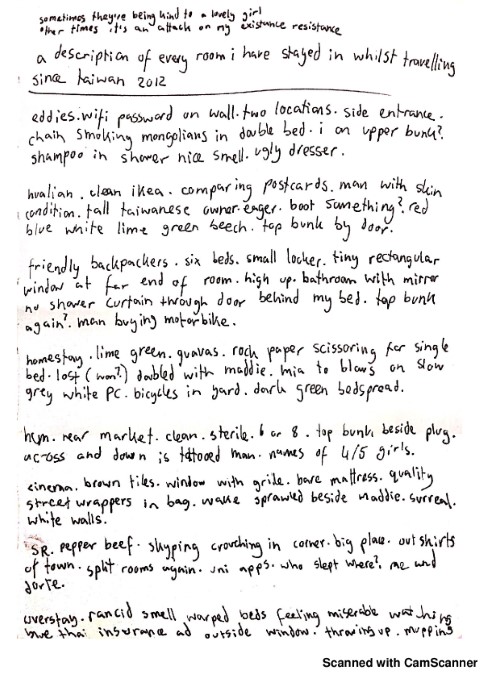 sometimes they're being kind to a lovely girl
other times it's an attack on my existance resistance
a description of every room i have stayed in whilst travelling
since taiwan 2012
eddies. wifi password on wall. two locations. side entrance.
chain smoking mongolians in double bed. i on upper bunk?
shampoo in shower nice smell. ugly dresser.
hualian. clean ikea. comparing postcards. man with skin
condition. tall taiwanese owner. eager. boot something? red
blue white lime green beech. top bunk by door.
friendly backpackers. six beds. small locker. tiny rectangular
window at far end of room. high up. bathroom with mirror
no shower curtain through door behind my bed. top bunk
again? man buying motorbike.
homestay. lime green. guavas. rock paper scissoring for single
bed. lost (won?) doubled with maddie. mia to blaws on slow
grey white PC. bicycles in yard. dark green bedspread.
hcm. near market. clean. sterile. 6 or 8. top bunk beside plug.
across and down is tattooed man. names of 4/5 girls.
cinema. brown tiles. window with grile. bare mattress. quality
street wrappers in bag. wake sprawled beside maddie. surreal.
white walls.
SR. pepper beef. skyping crouching in corner. big place. outskirts
of town. split rooms again. uni apps. who slept where? me and
overstay. rancid smell warped beds feeling miserable watching
thai insurance ad outside window. throwing up. mupping
Scanned with CamScanner